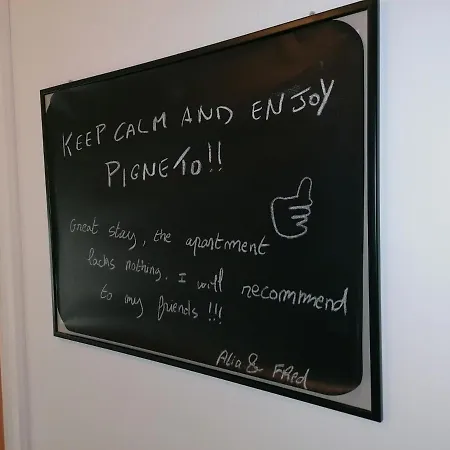 KEEP CALM AND ENJOY
PIGNETO!!
Great stay, the apartment
lacks nothing. I will recommend
to my friends !!!
Alia & FRed